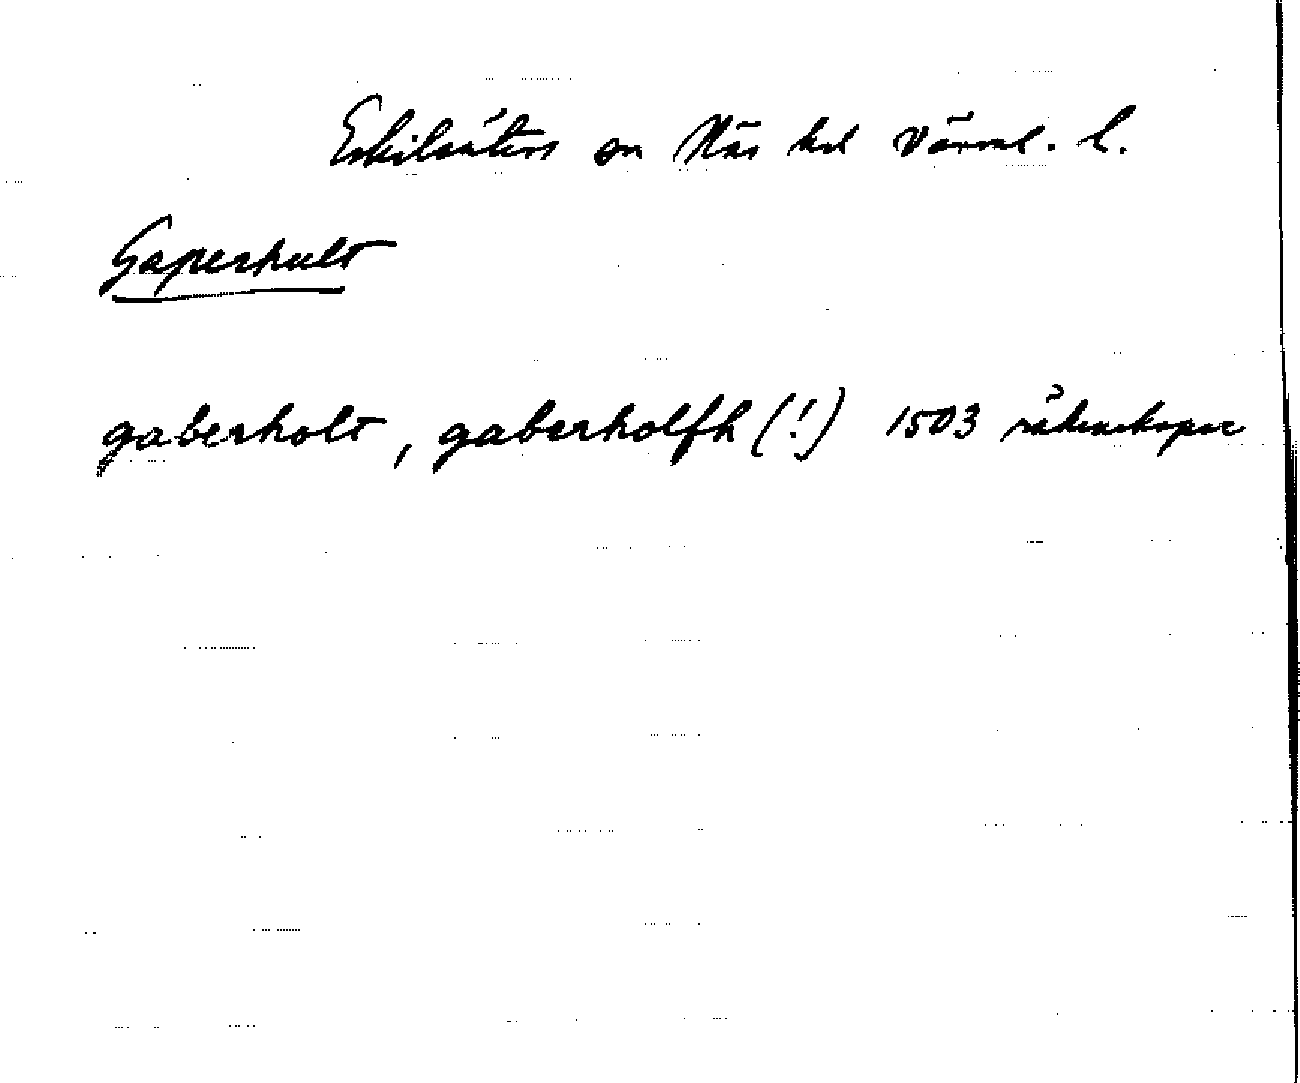 Eskilsäters sn Näs hd Värml. l.
Gaperhult
gaberholt, gaberholfh (!) 1503 räkenskaper